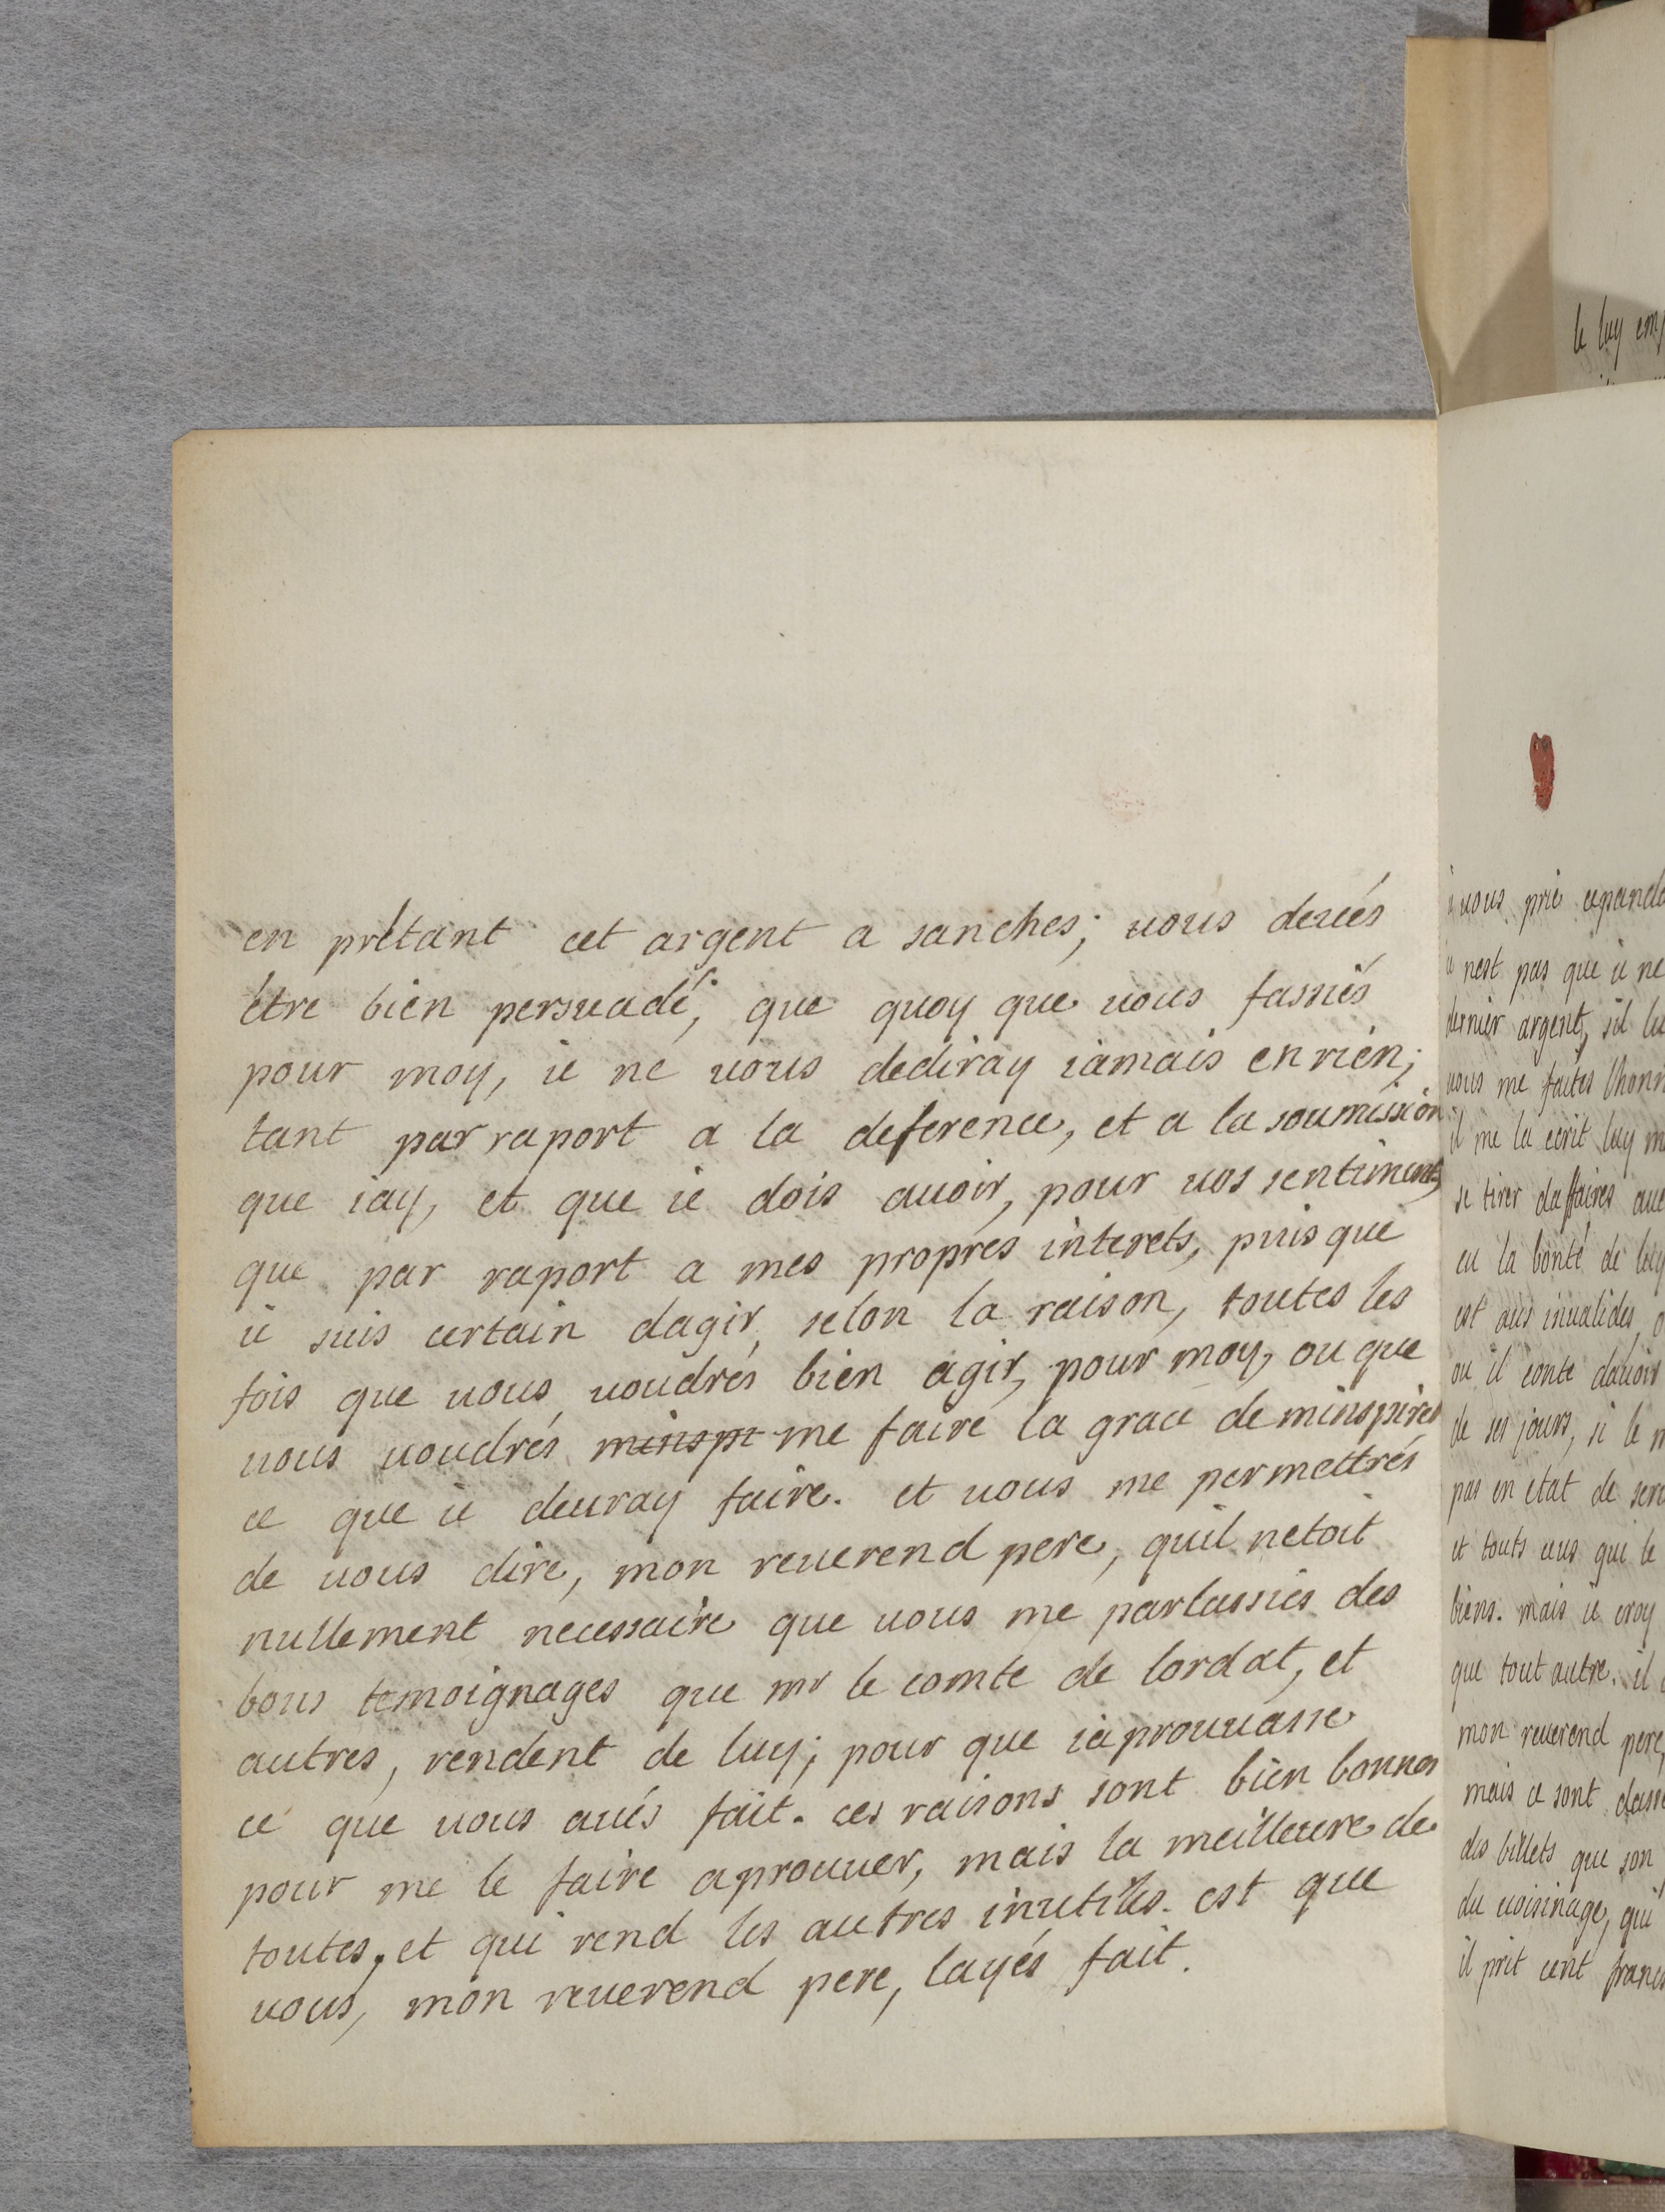 en prêtant cet argent a sanches; uous deués
être bien persuadé, que quoy que uous fassiés
pour moy, ie ne uous dediray iamais en rien;
tant par raport a la deference, et a la soumission
que iay, et que ie dois auoir, pour uos sentiments,
que par raport a mes propres interets, puis que
ie suis certain dagir, selon la raison, toutes les
fois que uous uoudrés bien agir, pour moy, ou que
uous uoudrés minspi me faire la grace de minspirer
ce que ie deuray faire. et uous me permettrés
de uous dire, mon reuerend pere, quil netoit
nullement necessaire que uous me parlassiés des
bons temoignages que mr le comte de lordat, et
autres, rendent de luy; pour que iaprouuasse
ce que uous aués fait. ces raisons sont bien bonnes
pour me le faire aprouuer, mais la meilleure de
toutes, et qui rend les autres inutiles. est que
uous, mon reuerend pere, layés fait.
le luy
uous prie
nest pas que ie ne
dernier argent, sil
uous me faites
il me la ecrit luy
se tirer daffaires
eu la bonté de
est aus inualides,
ou il conte dauoir
de ses jours, si le
pas en etat de
et touts ceus qui le
biens. mais ie croy
que tout autre. il
mon reuerend pere,
mais ce sont
des billets que son
du uoisinage, qui
il prit cent francs